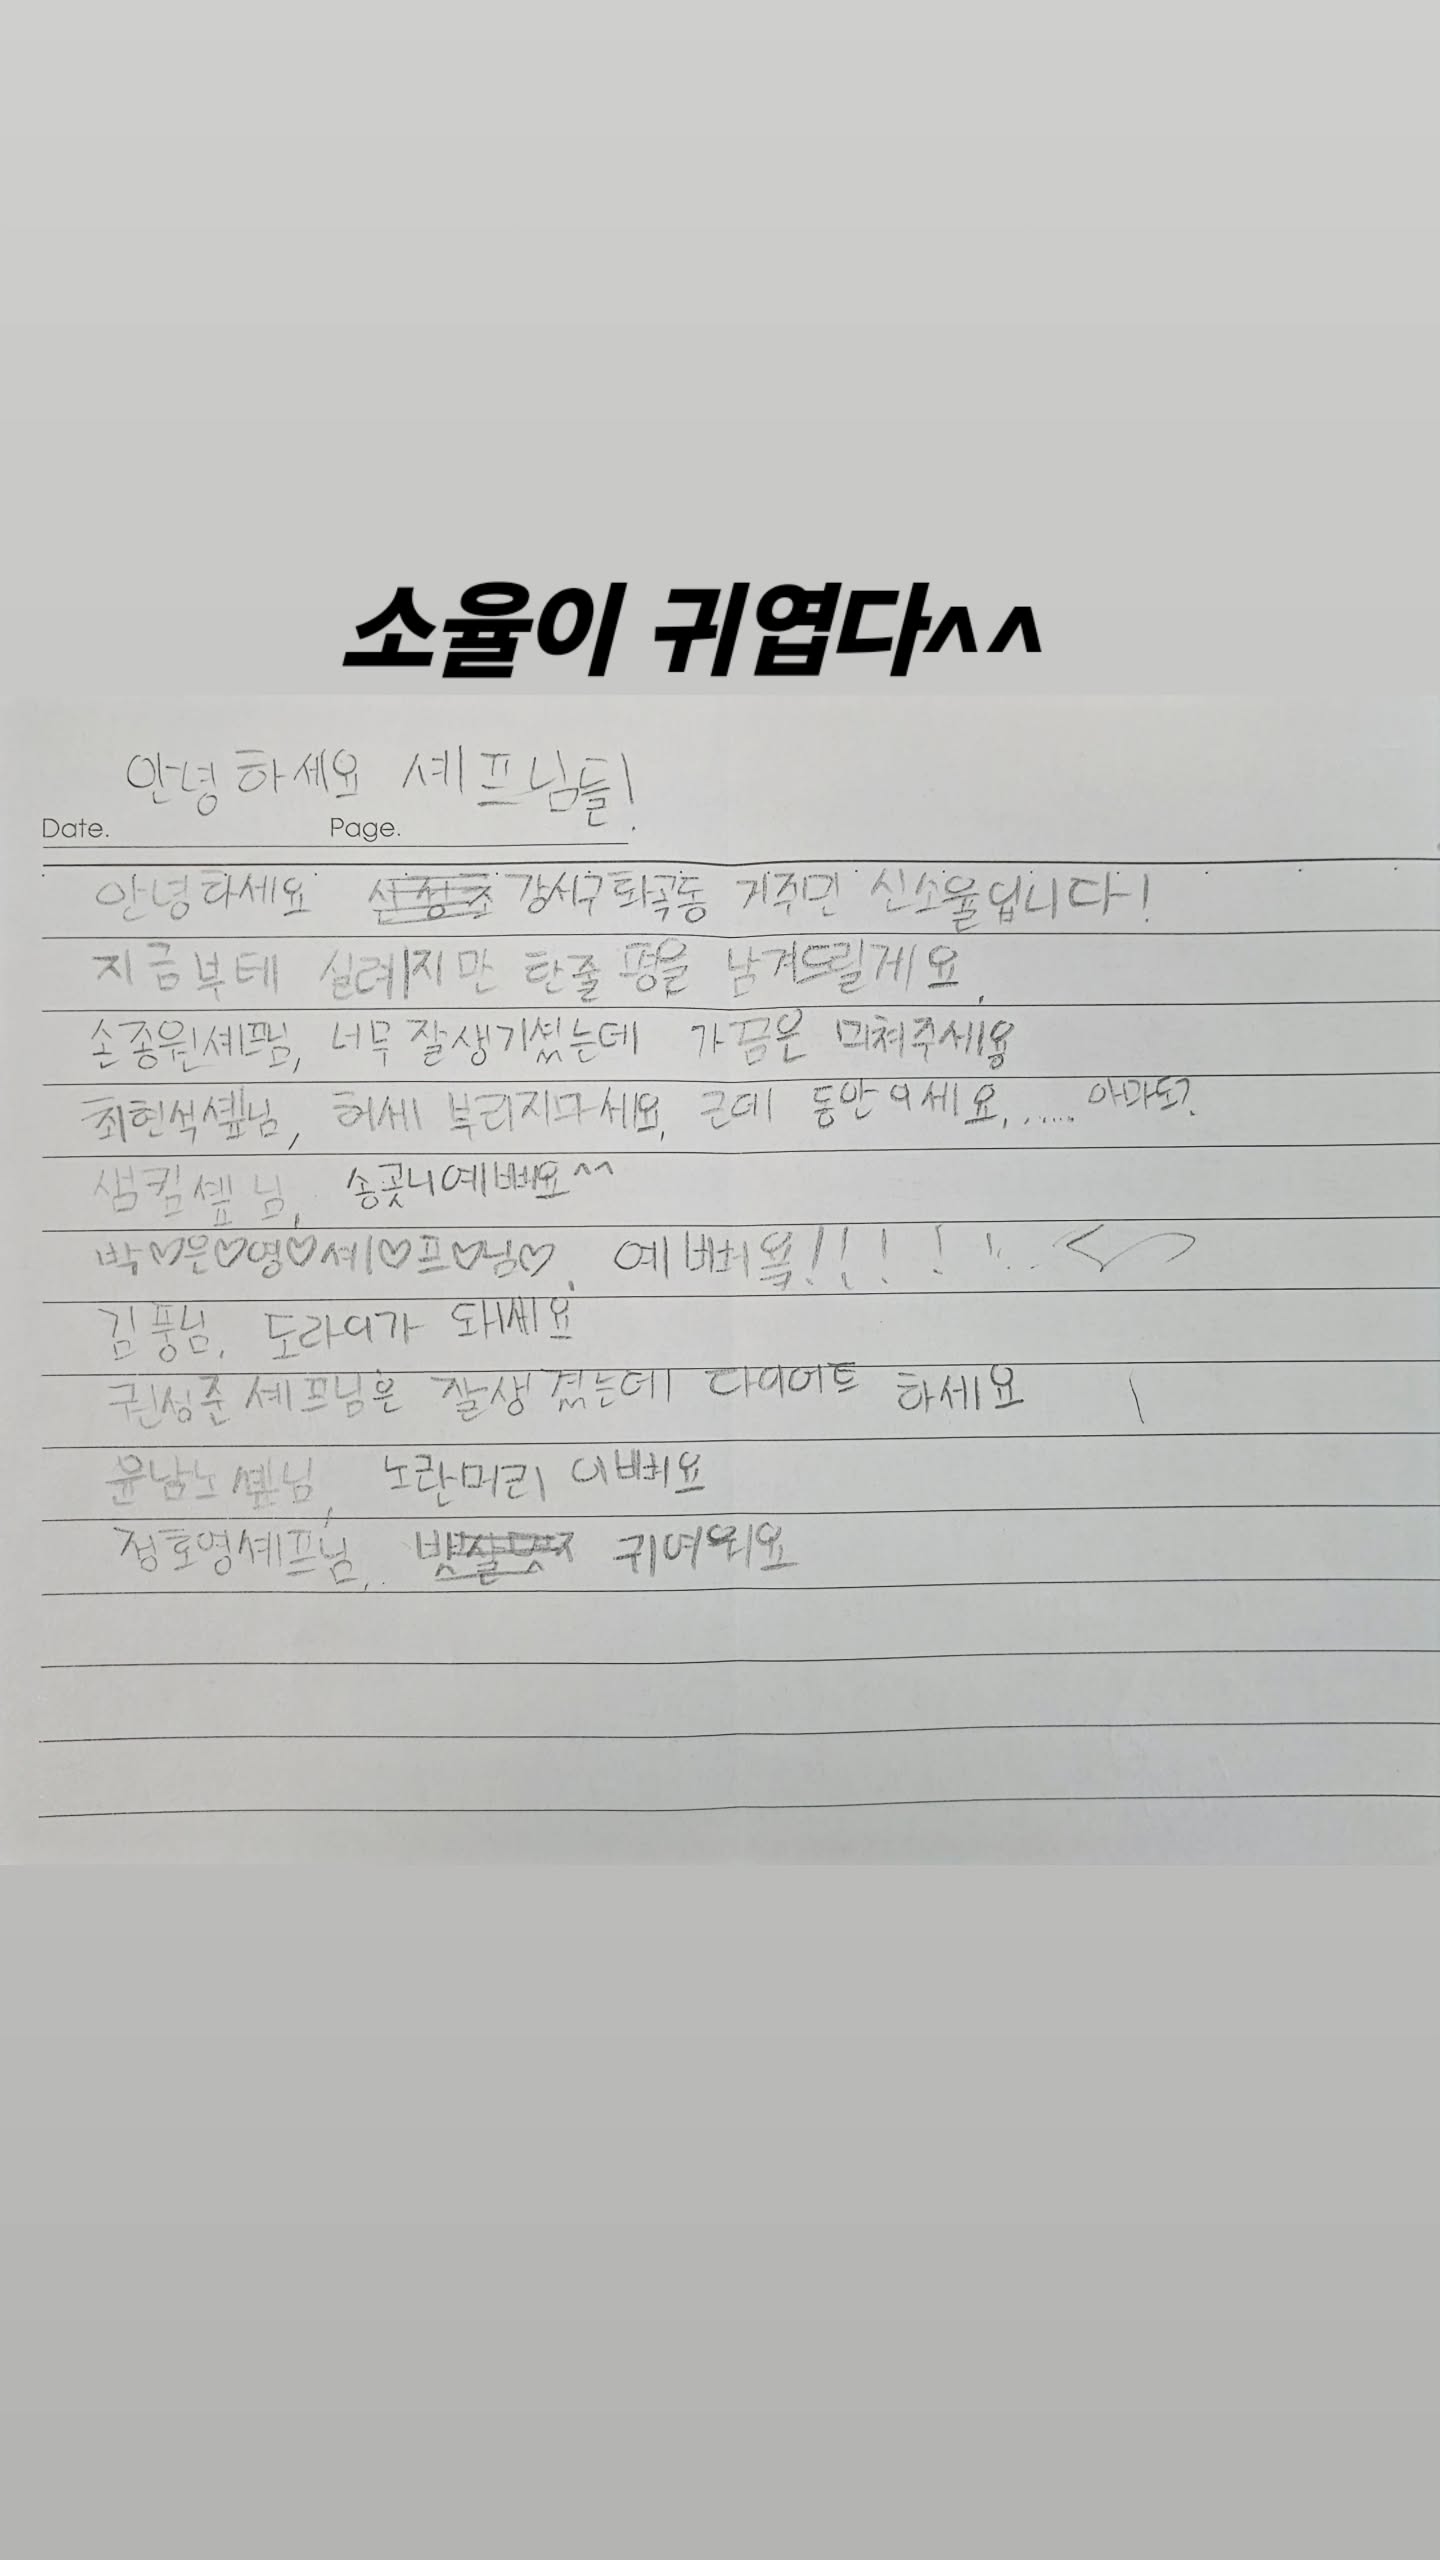 소율이 귀엽다^^
안녕하세요 셰프님들!
Date. Page.
안녕하세요 강서구화곡동 거주민 신소율입니다!
지금부테 실례지만 한줄평을 남겨드릴게요.
손종원셰프님, 너무잘생기셨는데 가끔은 미쳐주세용
최현석셒님, 허세 부리지마세요. 근데 동안이세요...... 아마도?
샘킴셒님, 송곳니예뻐요^^
박♡은♡영♡셰♡프♡님♡. 예뻐욬!!!!!..
김풍님. 도라이가 돼세요
권성준셰프님은 잘생겼는데 다이어트 하세요
윤남노셒님, 노란머리 이뻐요
정호영셰프님, 귀여워요